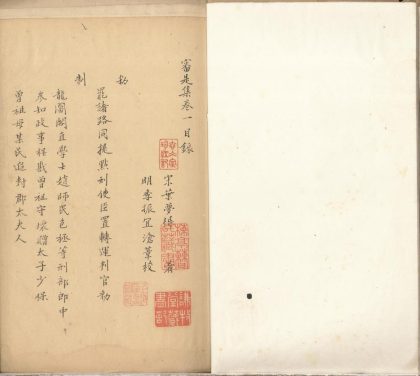 審是集卷一目錄
宋葉夢得著
明季振宜滄葦校
勅
罷諸路同提點刑使臣置轉運判官勅
制
龍圖閣直學士趙師民包拯等刑部郎中
參知政事程戡曾祖守瓌贈太子少保
曾祖母某氏追封郡太夫人